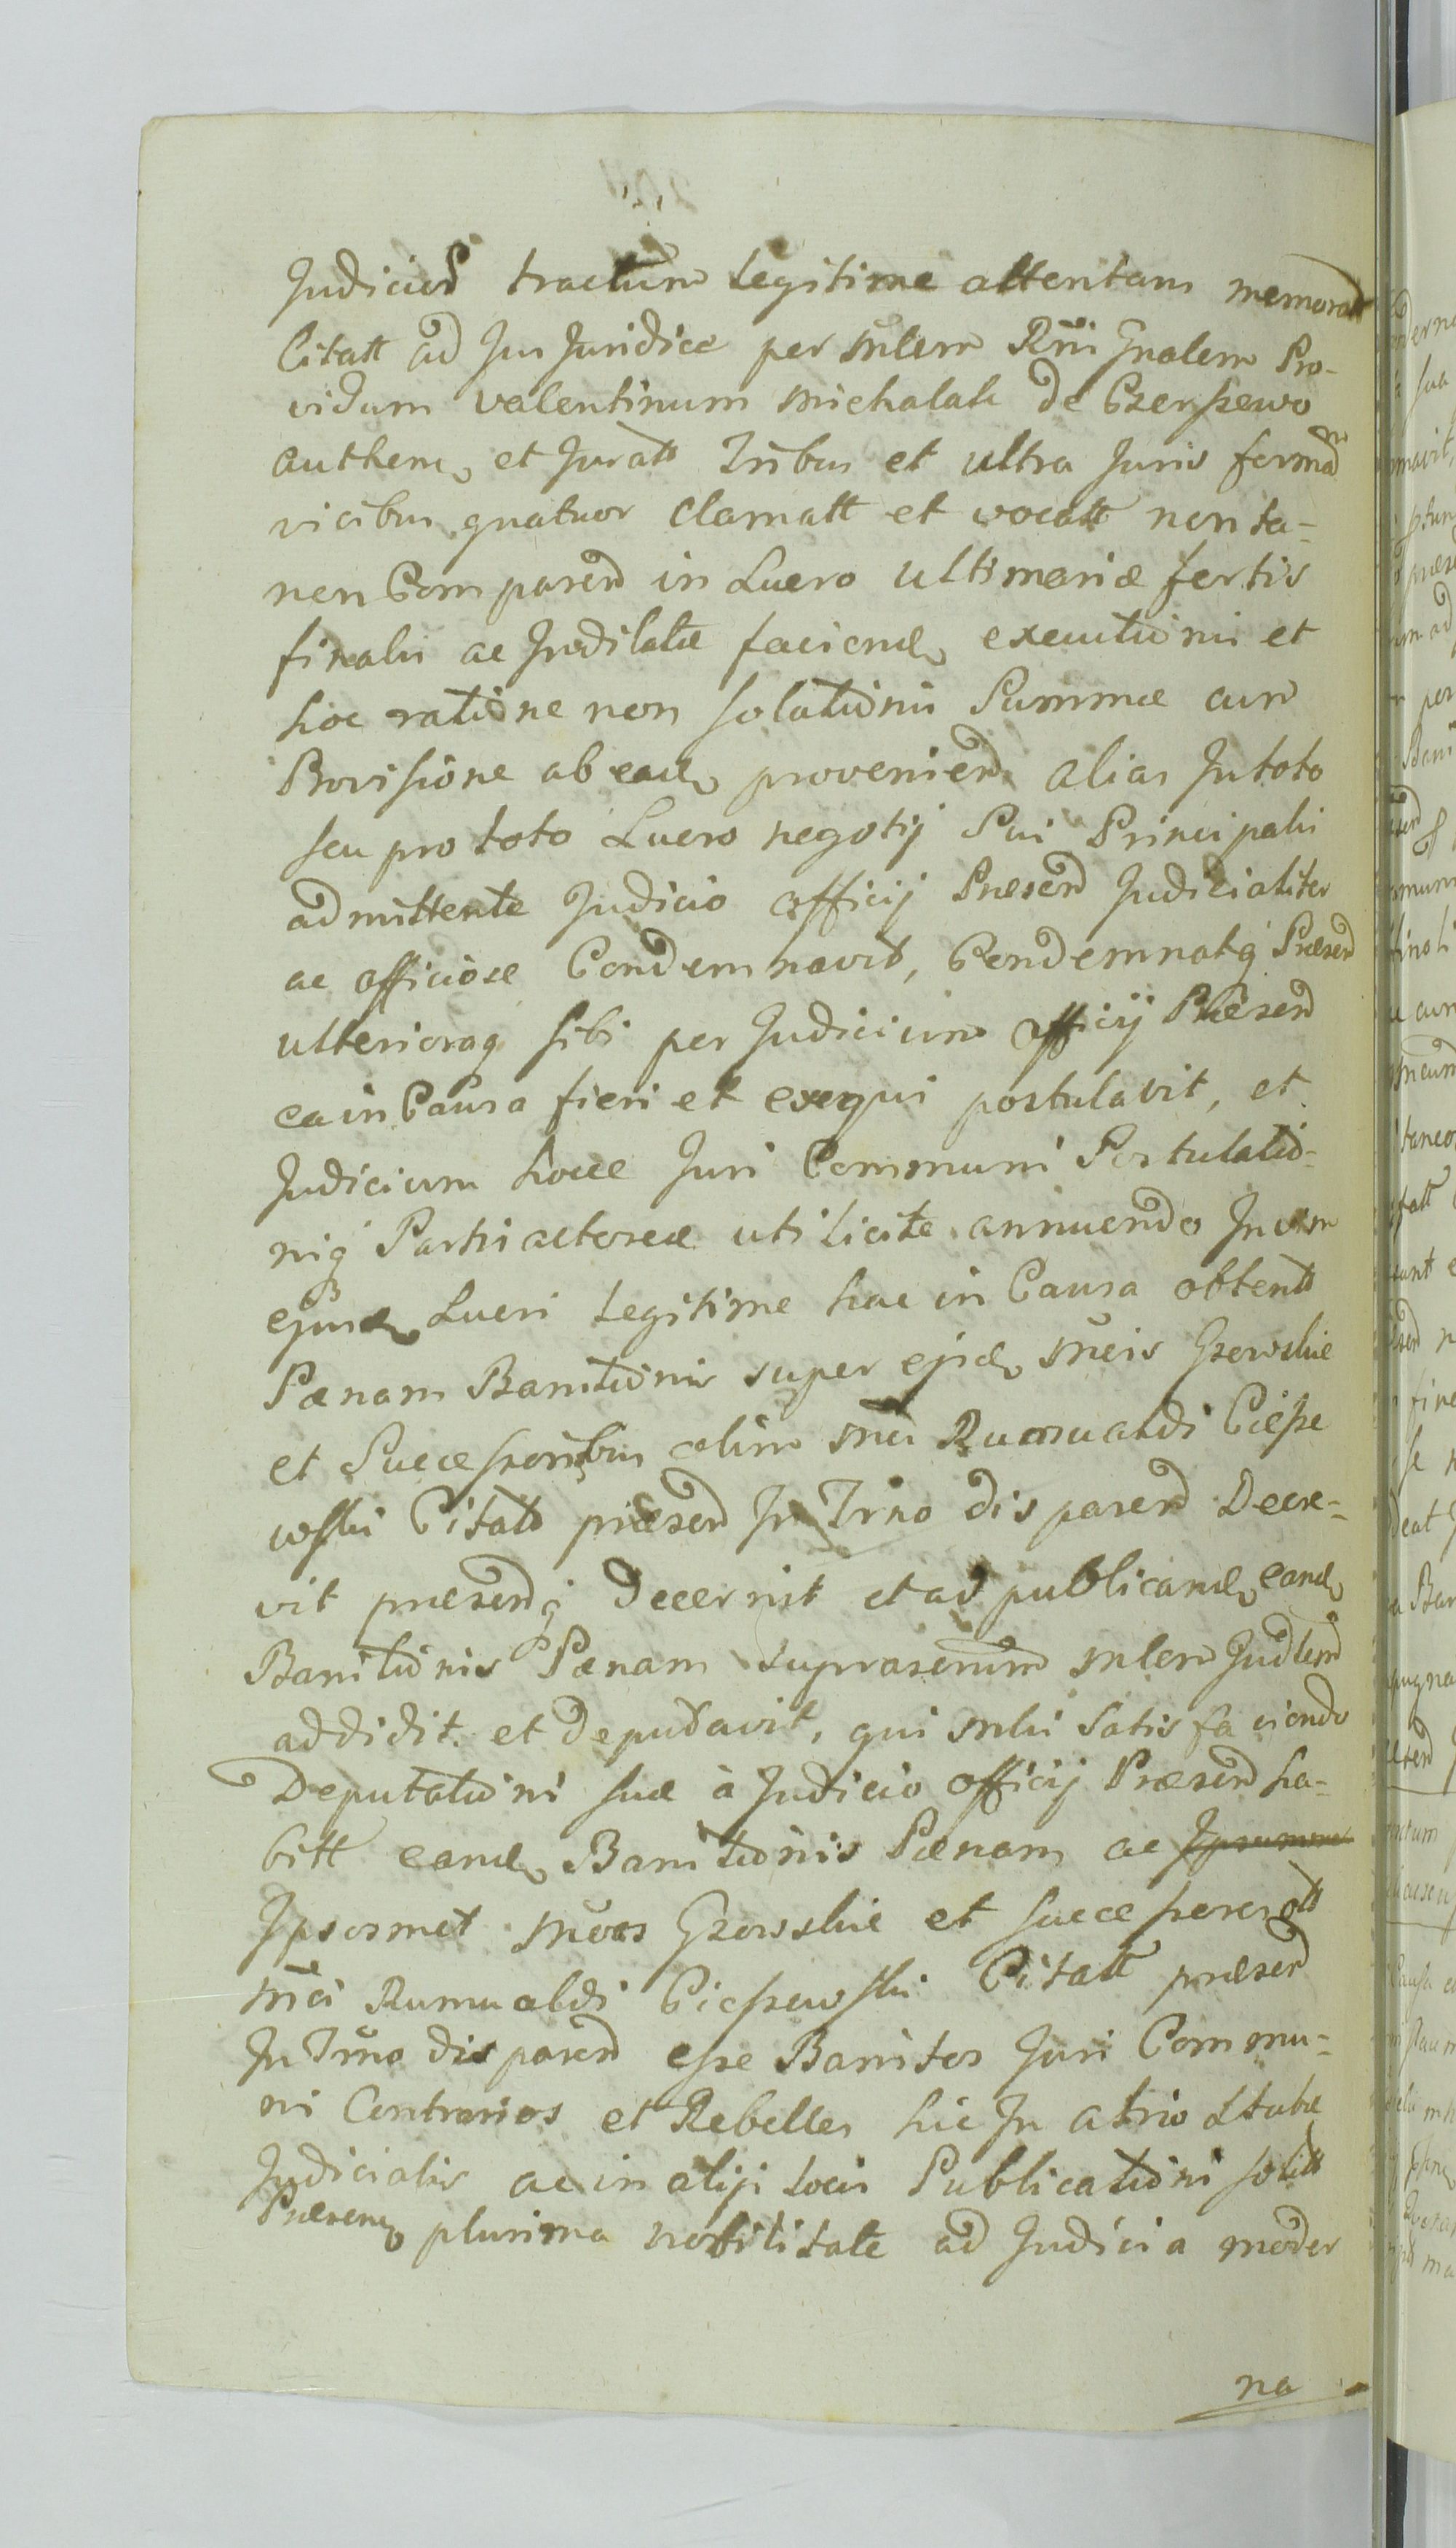 Judiciod tractum legitime attentam memoratt
Citatt ad Jus Juridice per Mlem Rni Gnalem Pro-
vidum Valentinum Michalak de Czerszewo
authen, et Juratt Tribus et ultra Juris formā
vicibus quatuor clamatt et vocatt non ta-
nen Comparend in Lucro ultimariæ fortis
finalis ac Inditatæ faciend, executionis et
hoc ratione non solutionis Summæ cum
Provisione ab eand, proveniend alias In toto
seu pro toto Lucro negotij Sui Principalis
admittente Judicio officij Præsend Judicialiter
ac officiose Condemnavit, Condemnatq Præsend
ulterioraq sibi per Judicium officij Præsend
ea in Causa fieri et exequi postulavit, et
Judicium hocce Juri Communi Postulatio-
niq Partis actoreæ uti licite annuendo In vim
ejusd, Lucri legitime hac in Causa obtentt
Pœnam Banitionis super ejsd, Mcis Gzowskie
et Successoribus olim Mci Rumualdi Ciesze
wski Citatt præsend In Trno disparend Decre-
vit præsendq Decernit et ad publicand, eand,
Banitionis Pœnam suprascrium Mlem Judlem
addidit et Deputavit, qui Mlis Satisfaciendo
Deputationi suæ à Judicio officij Præsend ha-
bitt eand, Banitionis Pœnam ac
Ipsosmet Mcos Gzowskie et Successores ott
Mci Rumualdi Cieszewski Citatt præsend
In Trno disparend esse Banitos Juri Commu-
ni Contrarios et Rebelles hic In atrio Stubæ
Judicialis ac in alijs locis Publicationi solitt
Præsen, plurima nobilitate ad Judicia moder
na